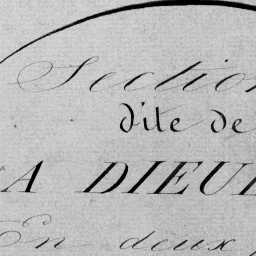 Section
dite de
A DIEU
En deux